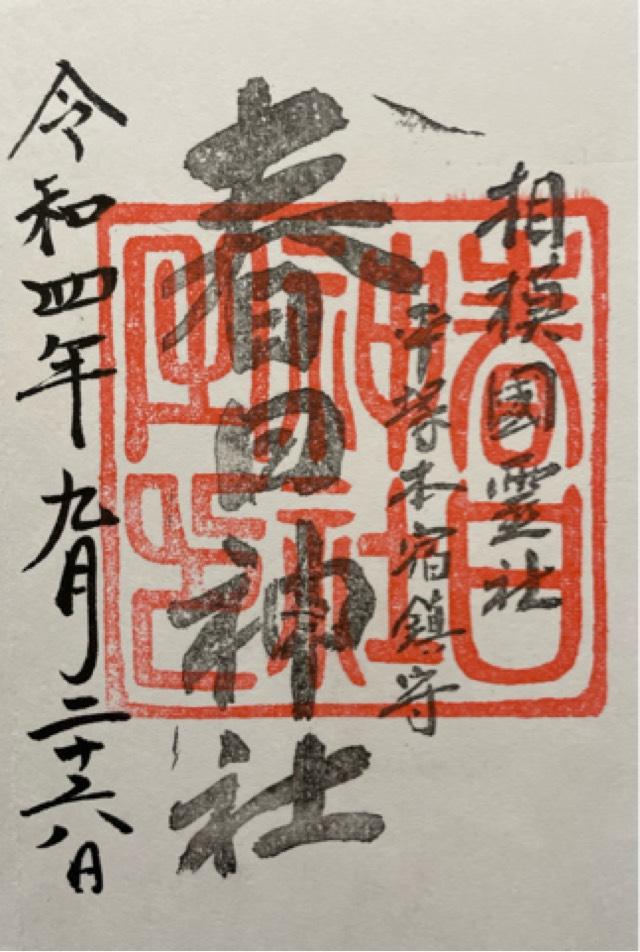 相模國霊社
平塚本宿鎮守
春日神社
春日神社
令和四年九月二十八日